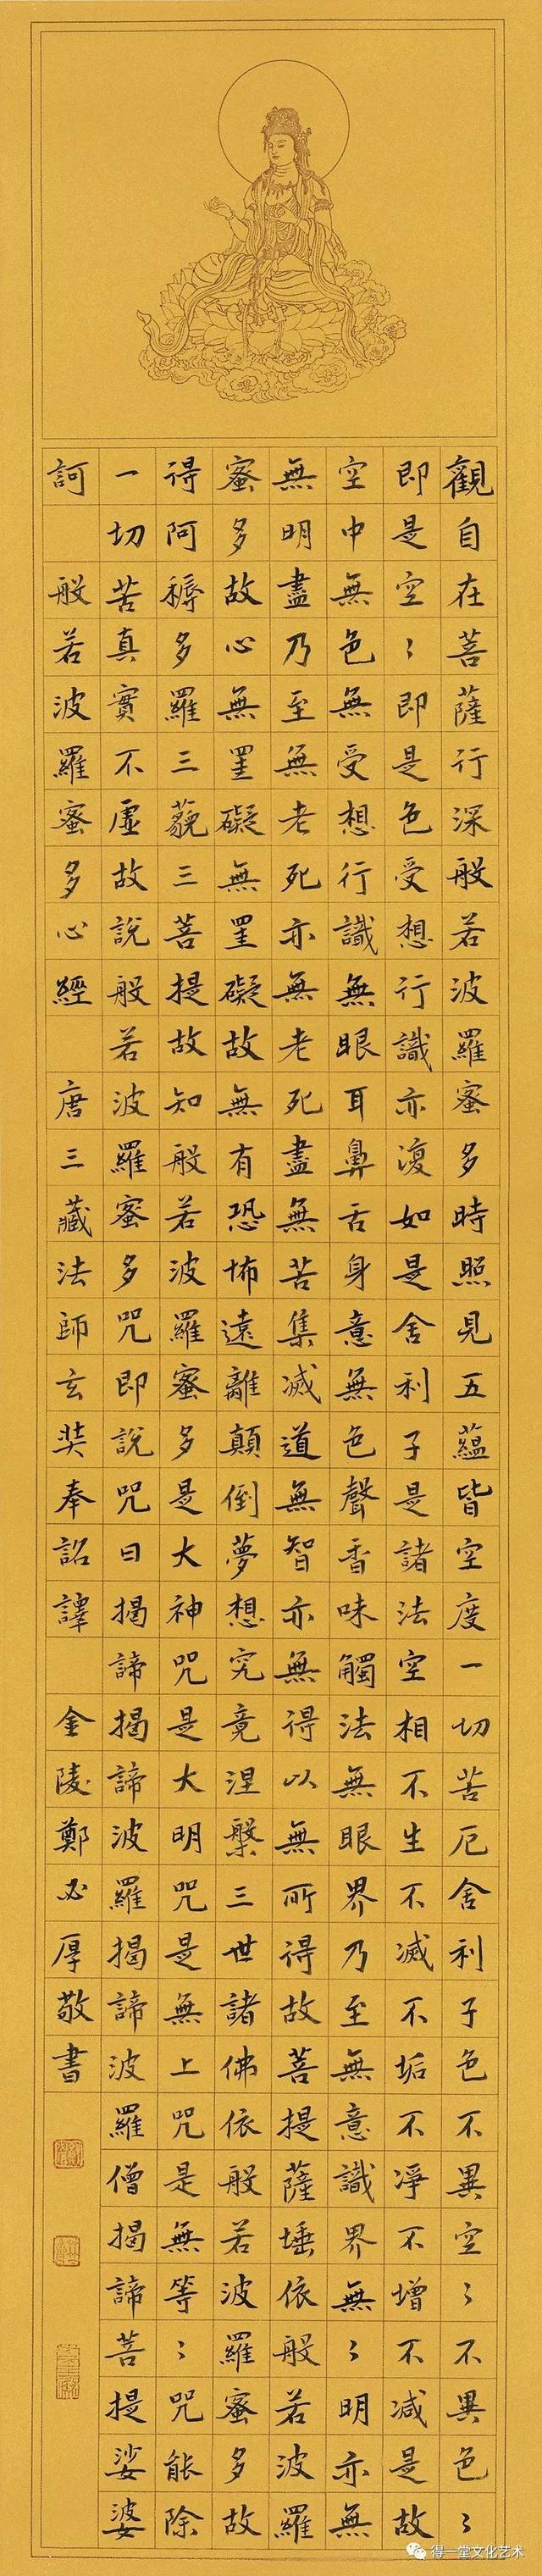 觀自在菩薩行深般若波羅蜜多時照見五蘊皆空度一切苦厄舍利子色不異空〻不異色〻
即是空〻即是色受想行識亦復如是舍利子是諸法空相不生不滅不垢不淨不增不減是故
空中無色無受想行識無眼耳鼻舌身意無色聲香味觸法無眼界乃至無意識界無〻明亦無
無明盡乃至無老死亦無老死盡無苦集滅道無智亦無得以無所得故菩提薩埵依般若波羅
蜜多故心無罣礙無罣礙故無有恐怖遠離顛倒夢想究竟涅槃三世諸佛依般若波羅蜜多故
得阿耨多羅三藐三菩提故知般若波羅蜜多是大神咒是大明咒是無上咒是無等〻咒能除
一切苦真實不虛故說般若波羅蜜多咒即說咒曰揭諦揭諦波羅揭諦波羅僧揭諦菩提娑婆
訶 般若波羅蜜多心經 唐三藏法師玄奘奉詔譯 金陵鄭必厚敬書
得一堂文化艺术